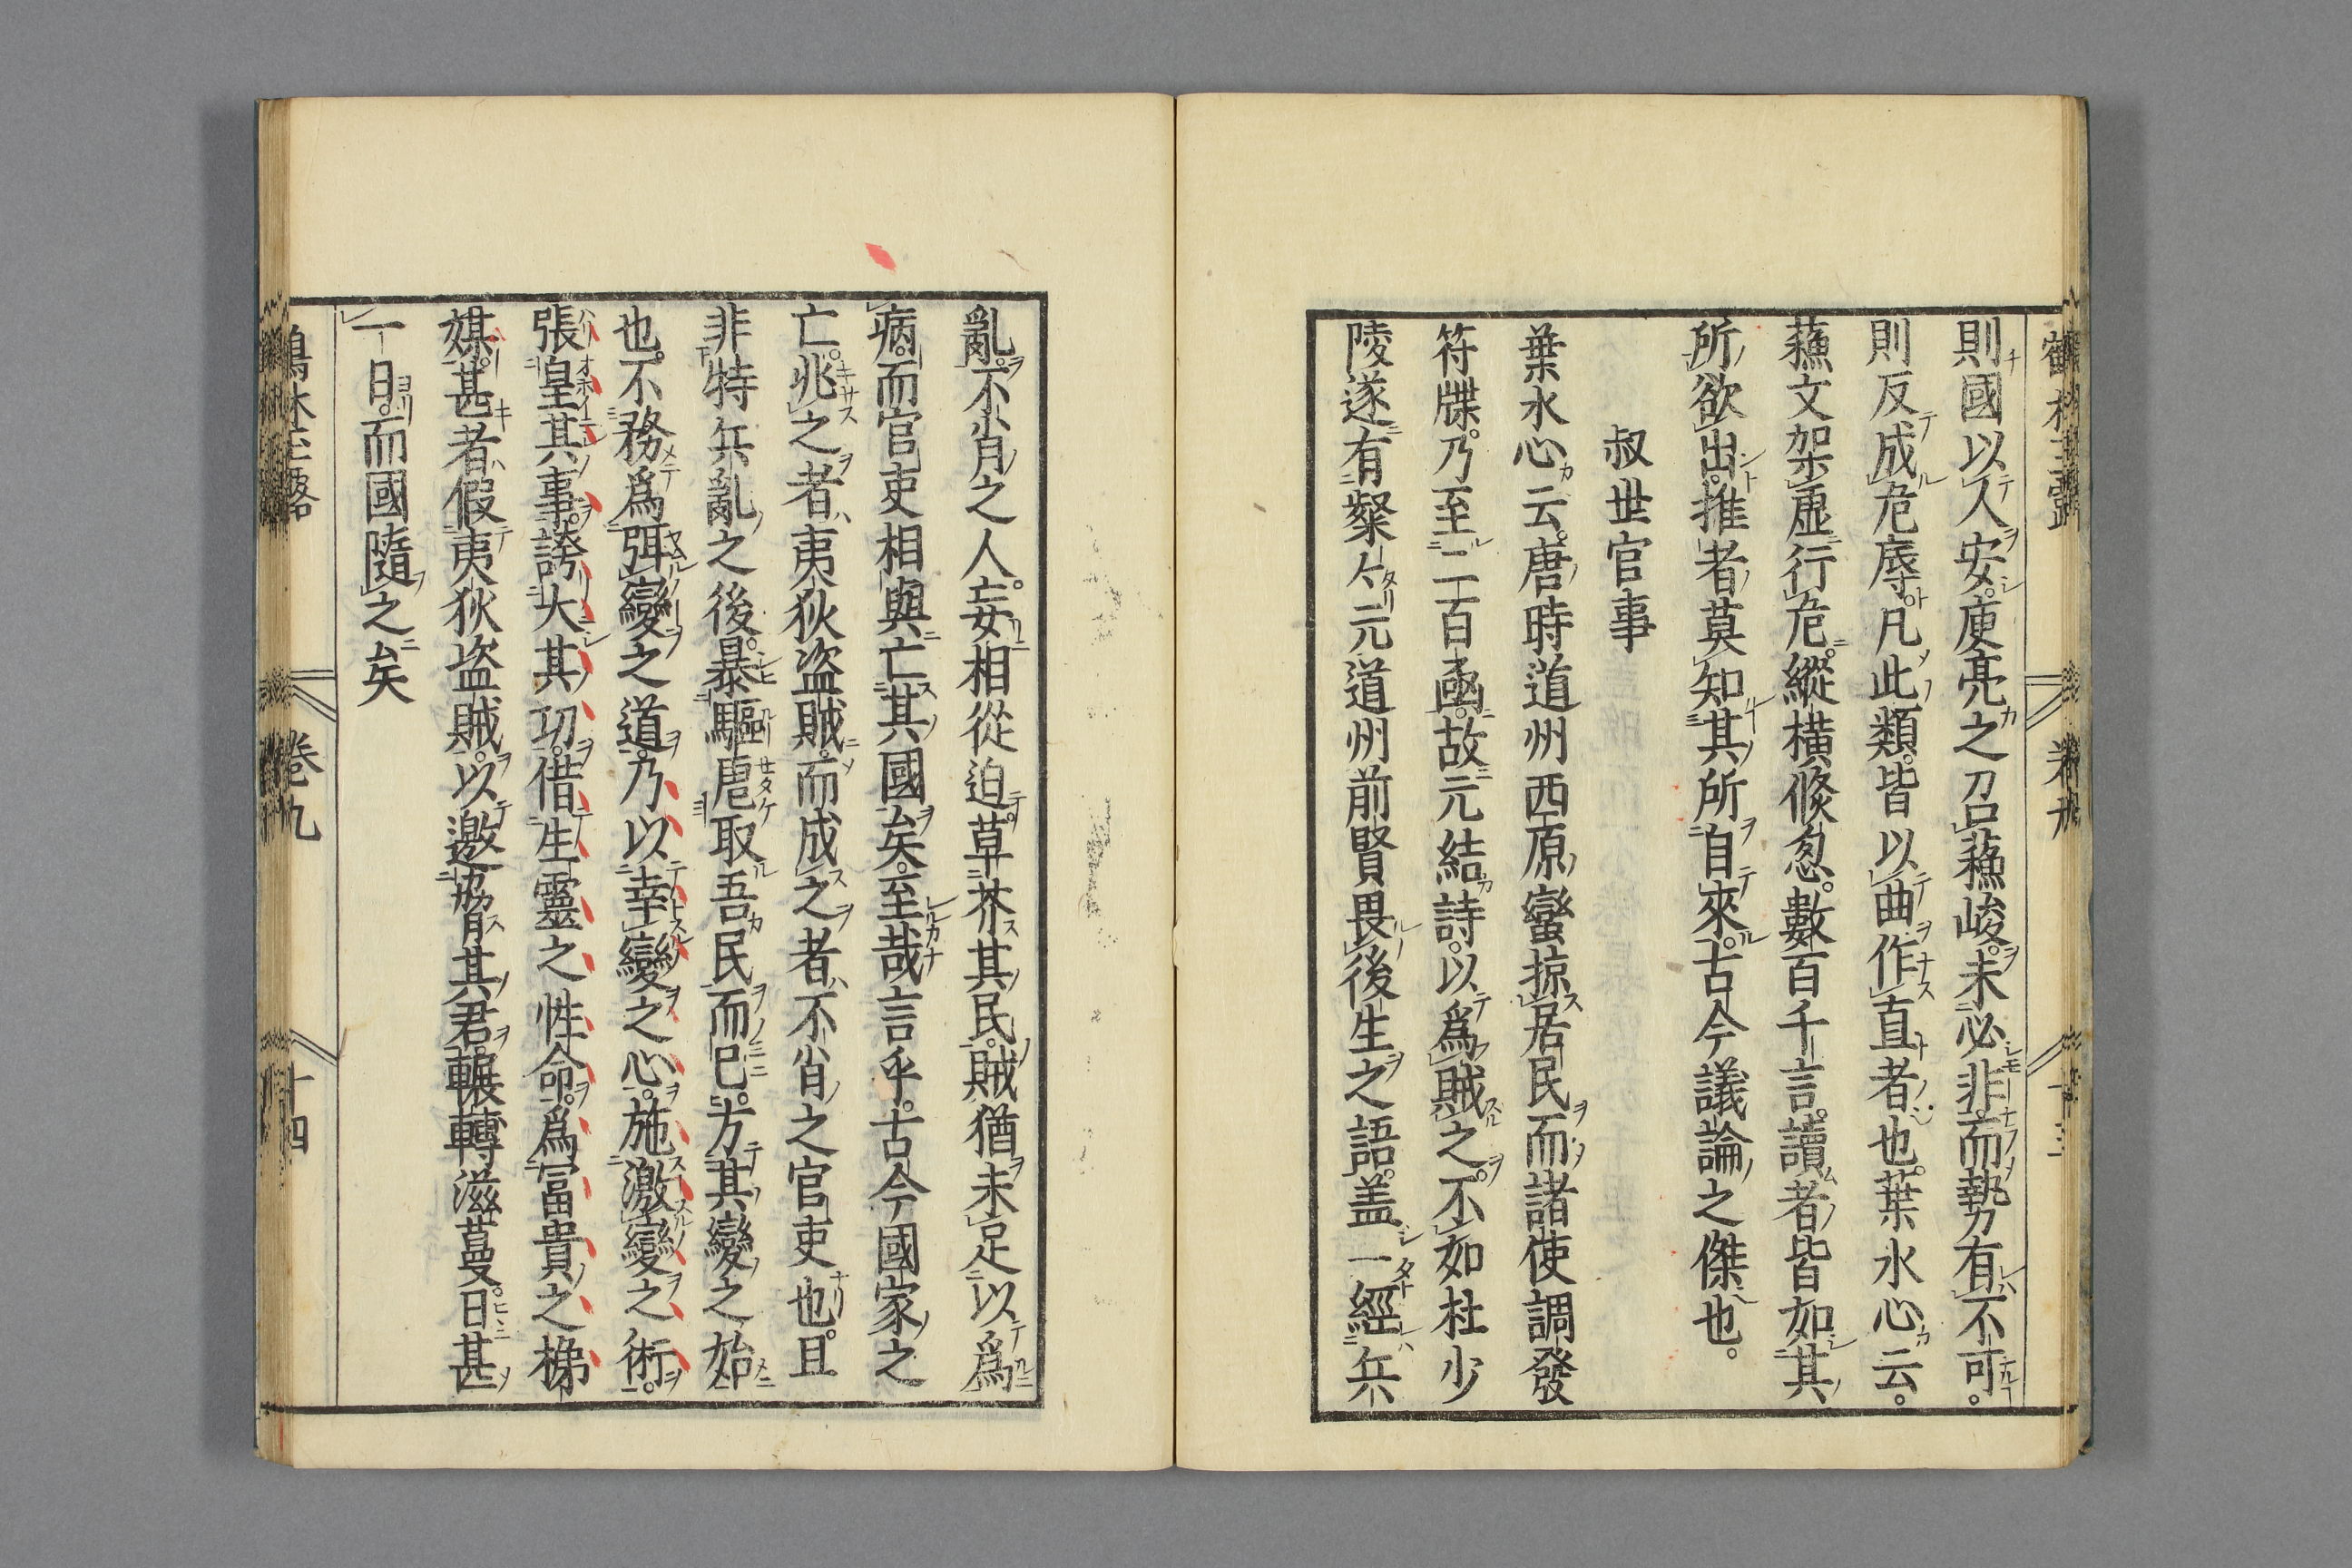 則國以人安。庾亮之召蘓峻。未必非而勢有不可。
則反成危辱。凡此類。皆以曲作直者也。葉水心云。
蘓文架虛行危。縱橫倐忽。數百千言。讀者皆如其
所欲出。推者莫知其所自來。古今議論之傑也。
叔世官事
葉水心云。唐時道州西原蠻掠居民。而諸使調發
符牒。乃至二百函。故元結詩。以為賊之。不如杜少
陵遂有粲粲元道州前賢畏後生之語。盖一經兵
亂。不肖之人。妄相從迫草芥其民。賊猶未足以為
病。而官吏相與亡其國矣。至哉言乎。古今國家之
亡。兆之者夷狄盗賊。而成之者不肖之官吏也。且
非特兵亂之後。暴驅虐取吾民而已。方其變之始
也。不務為弭變之道。乃以幸變之心。施激變之術。
張皇其事。誇大其功。借生靈之性命。為冨貴之梯
媒。甚者假夷狄盗賊。以邀脅其君。輾轉滋蔓。日甚
一日。而國隨之矣
鶴林玉露
卷九
十四